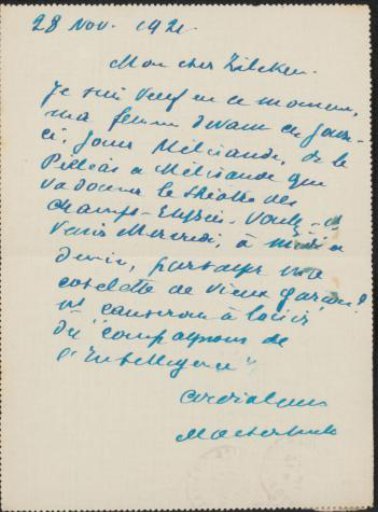 28 Nov. 1921.
Mon cher Zilcken.
Je suis veuf en ce moment,
ma femme devant ces jours-
ci, jouer Mélisande, de le
Pelléas et Mélisande que
va donner le théâtre des
Champs-Elysées. Voulez-vous
venir Mercredi, à midi et
demie, partager une
cotelette de vieux garçon?
et causerons à loisir
des "compagnons de
l'Intelligence"
Cordialement
Maeterlinck